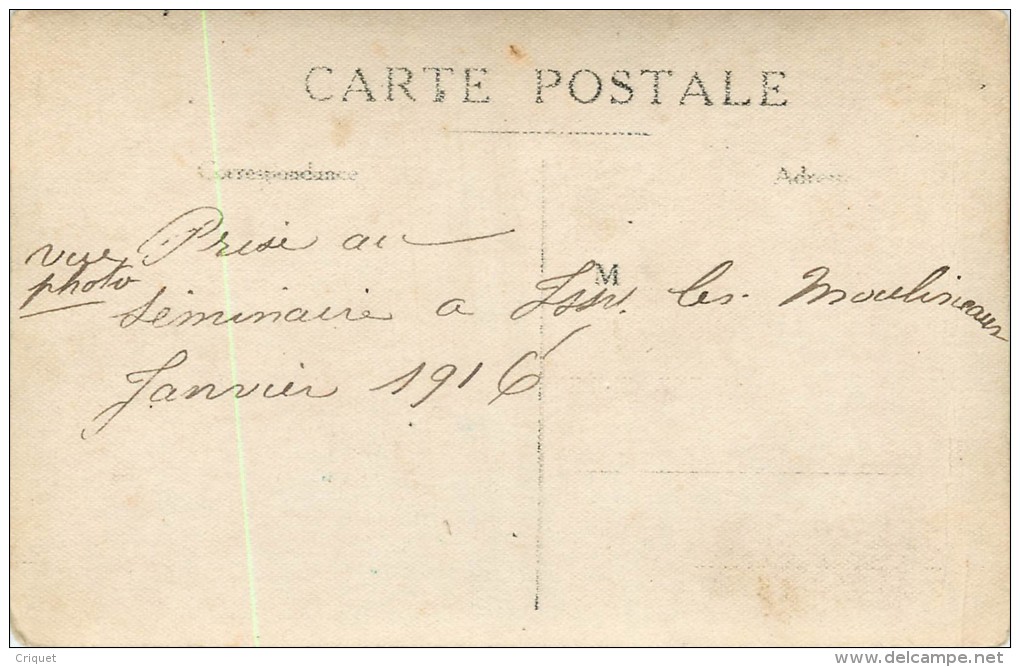 CARTE POSTALE
Correspondance
Adresse
vue photo
Prise au
M
Séminaire a Issy les Moulineaux
Janvier 1916
Criquet
delcampe.net